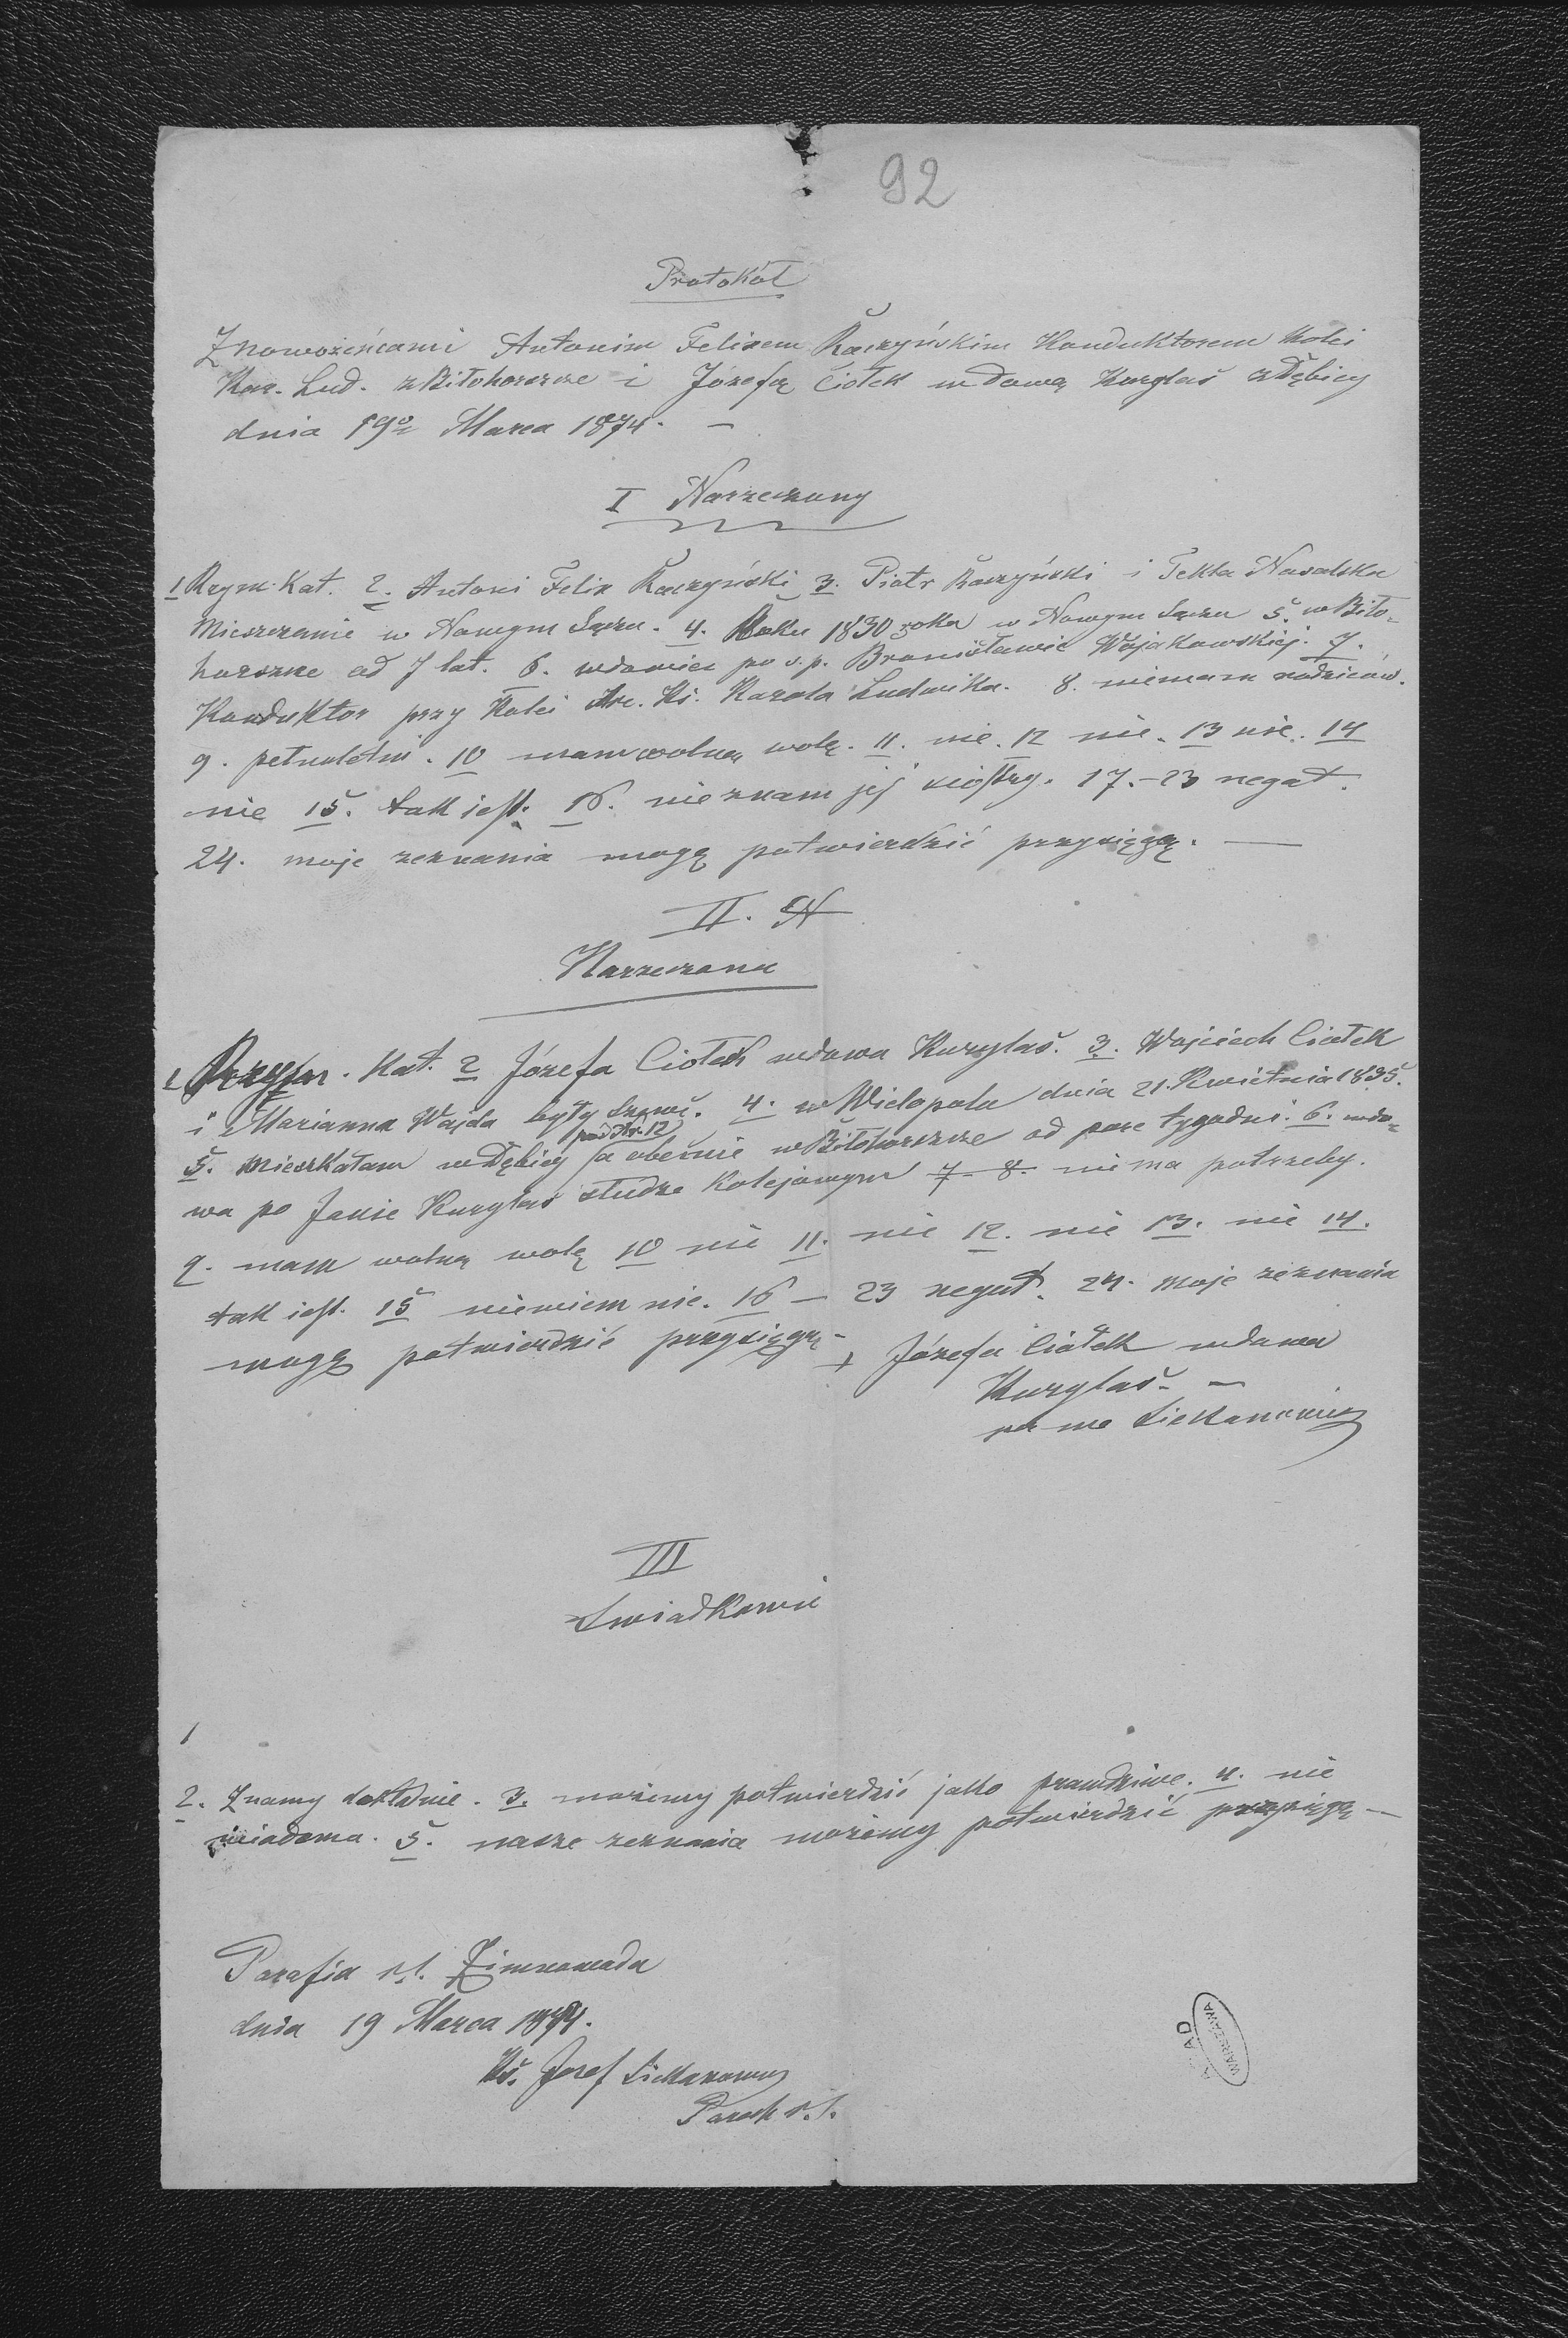 92
Protokół
Z nowożeńcami Antonim Felixem Raczyńskim Konduktorem Kolei
Kar. Lud. z Biłohorszcze i Józefą Ciołek wdową Kurylaś z Dębicy
dnia 19go Marca 1874. —
I Narzeczony
1 Rzym. Kat. 2. Antoni Felix Raczyński 3. Piotr Raczyński i Tekla Nasalska
Mieszczanie w Nowym Sączu. 4. Roku 1830 roku w Nowym Sączu 5. w Biło-
horszcze od 7 lat. 6. wdowiec po s.p. Bronisławie Wojakowskiej. 7.
Konduktor przy Kolei Arc. Ks. Karola Ludwika. 8. niemam rodziców.
9. pełnoletni. 10 mam wolną wolę. 11. nie. 12 nie. 13 nie. 14
nie 15. tak jest. 16. nie znam jej siostry. 17.-23 negat.
24. moje zeznania mogę potwierdzić przysięgą. —
II. N
Narzeczona
1 Rzym. Kat. 2 Józefa Ciołek wdowa Kurylaś. 3. Wojciech Ciołek
i Marianna Wajda były . 4. w Wielopolu dnia 21. Kwietnia 1835.
pod Nr. 12
5. Mieszkałam w Dębicy a obecnie w Biłohorszcze od pare tygodni. 6. wdo-
wa po Janie Kurylaś słudze Kolejowym 7-8. nie ma potrzeby.
9. mam wolną wolę 10 nie 11. nie 12. nie 13. nie 14.
tak jest. 15 niewiem nie. 16 — 23 negat. 24. moje zeznania
mogę potwierdzić przysięgą —
+ Józefa Ciołek wdowa
Kurylaś. —
per me Siekanowicz
III
Świadkowie
1
2. Znamy dokładnie. 3. możemy potwierdzić jako prawdziwe. 4. nie
wiadoma. 5. nasze zeznania możemy potwierdzić przysięgą —
Parafia r.l. Zimnawoda
dnia 19 Marca 1874.
Ks. Josef Siekanowicz
Paroch r.l.
AGAD
WARSZAWA